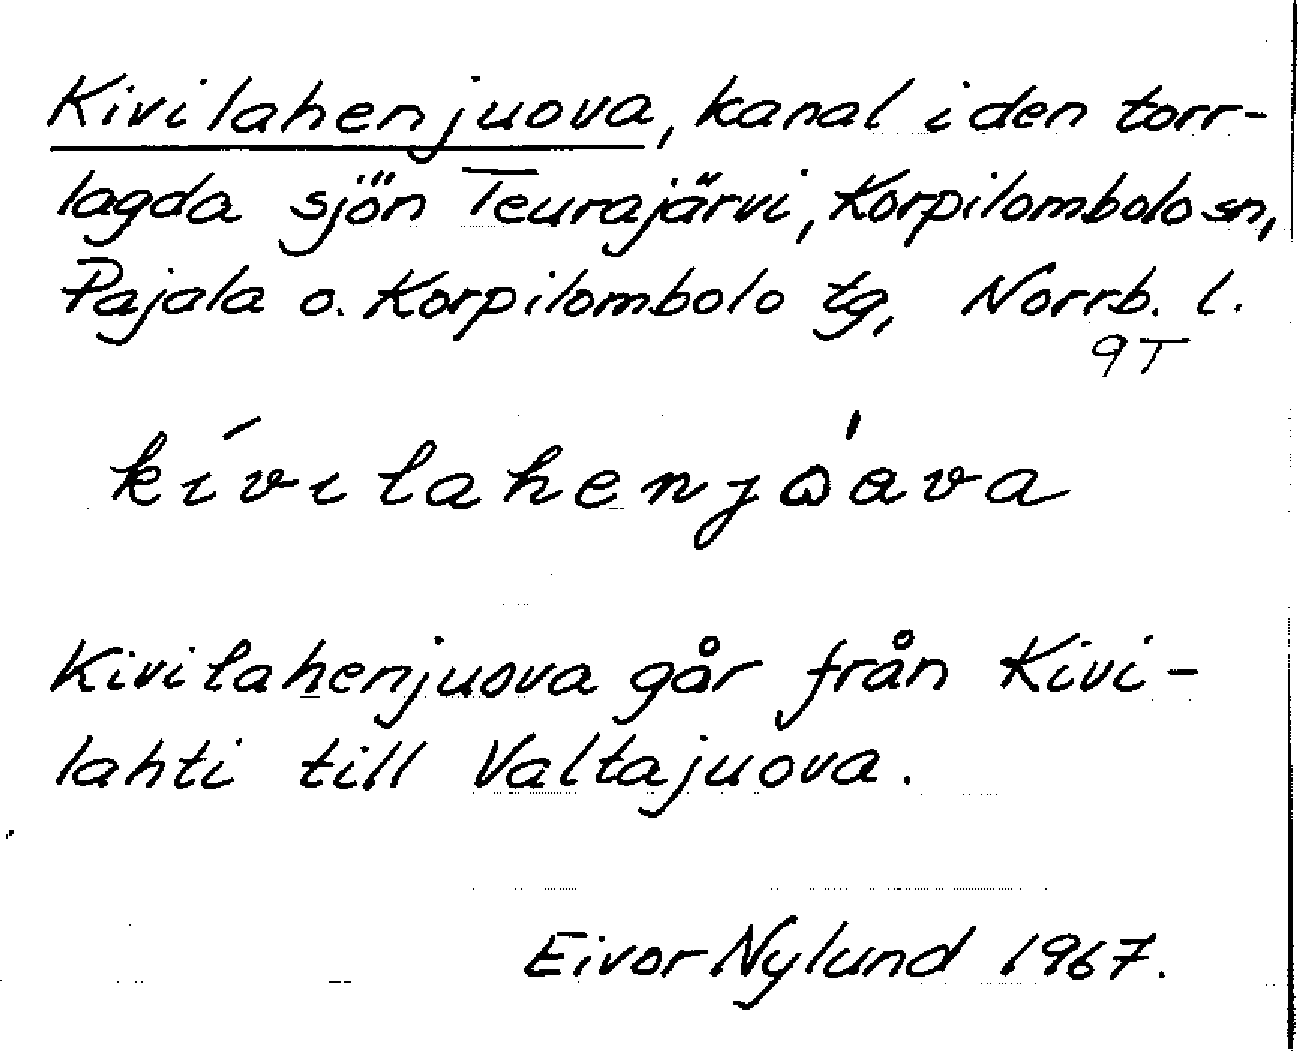 Kivilahenjuova, kanal i den torr-
lagda sjön Teurajärvi, Korpilombolo sn,
Pajala o. Korpilombolo tg, Norrb. l.
9T
kívilahenjὼava
Kivilahenjuova går från Kivi-
lahti till Valtajuova.
Eivor Nylund 1967.